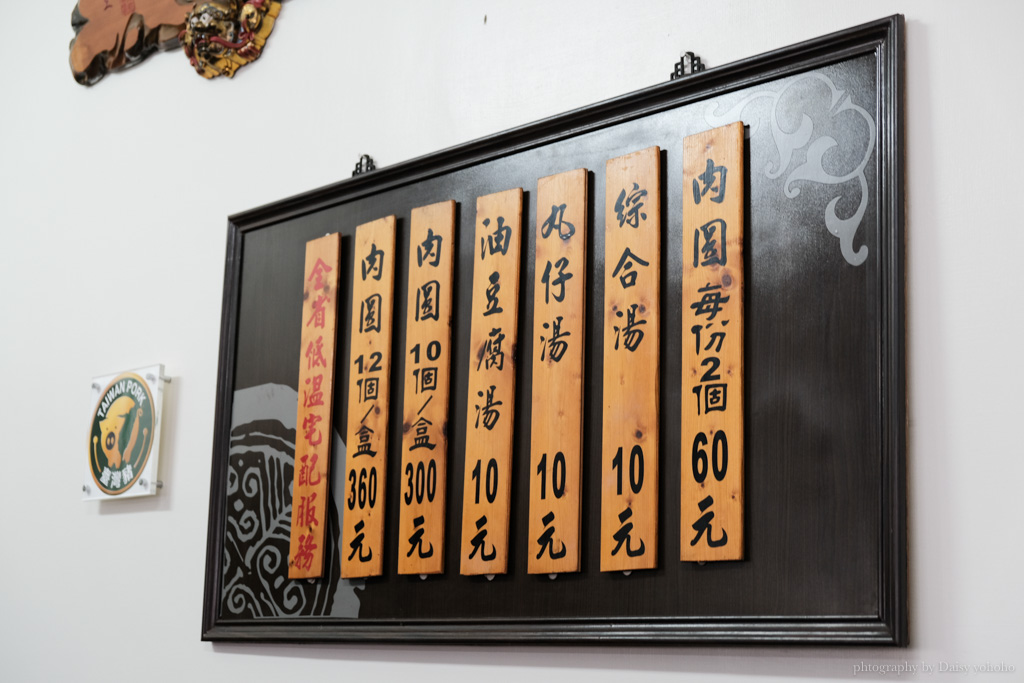 肉圓每份2個60元
綜合湯10元
丸仔湯10元
油豆腐湯10元
肉圓10個/盒300元
肉圓12個/盒360元
全省低溫宅配服務
TAIWAN PORK
臺灣豬
phtography by Daisy yohoho